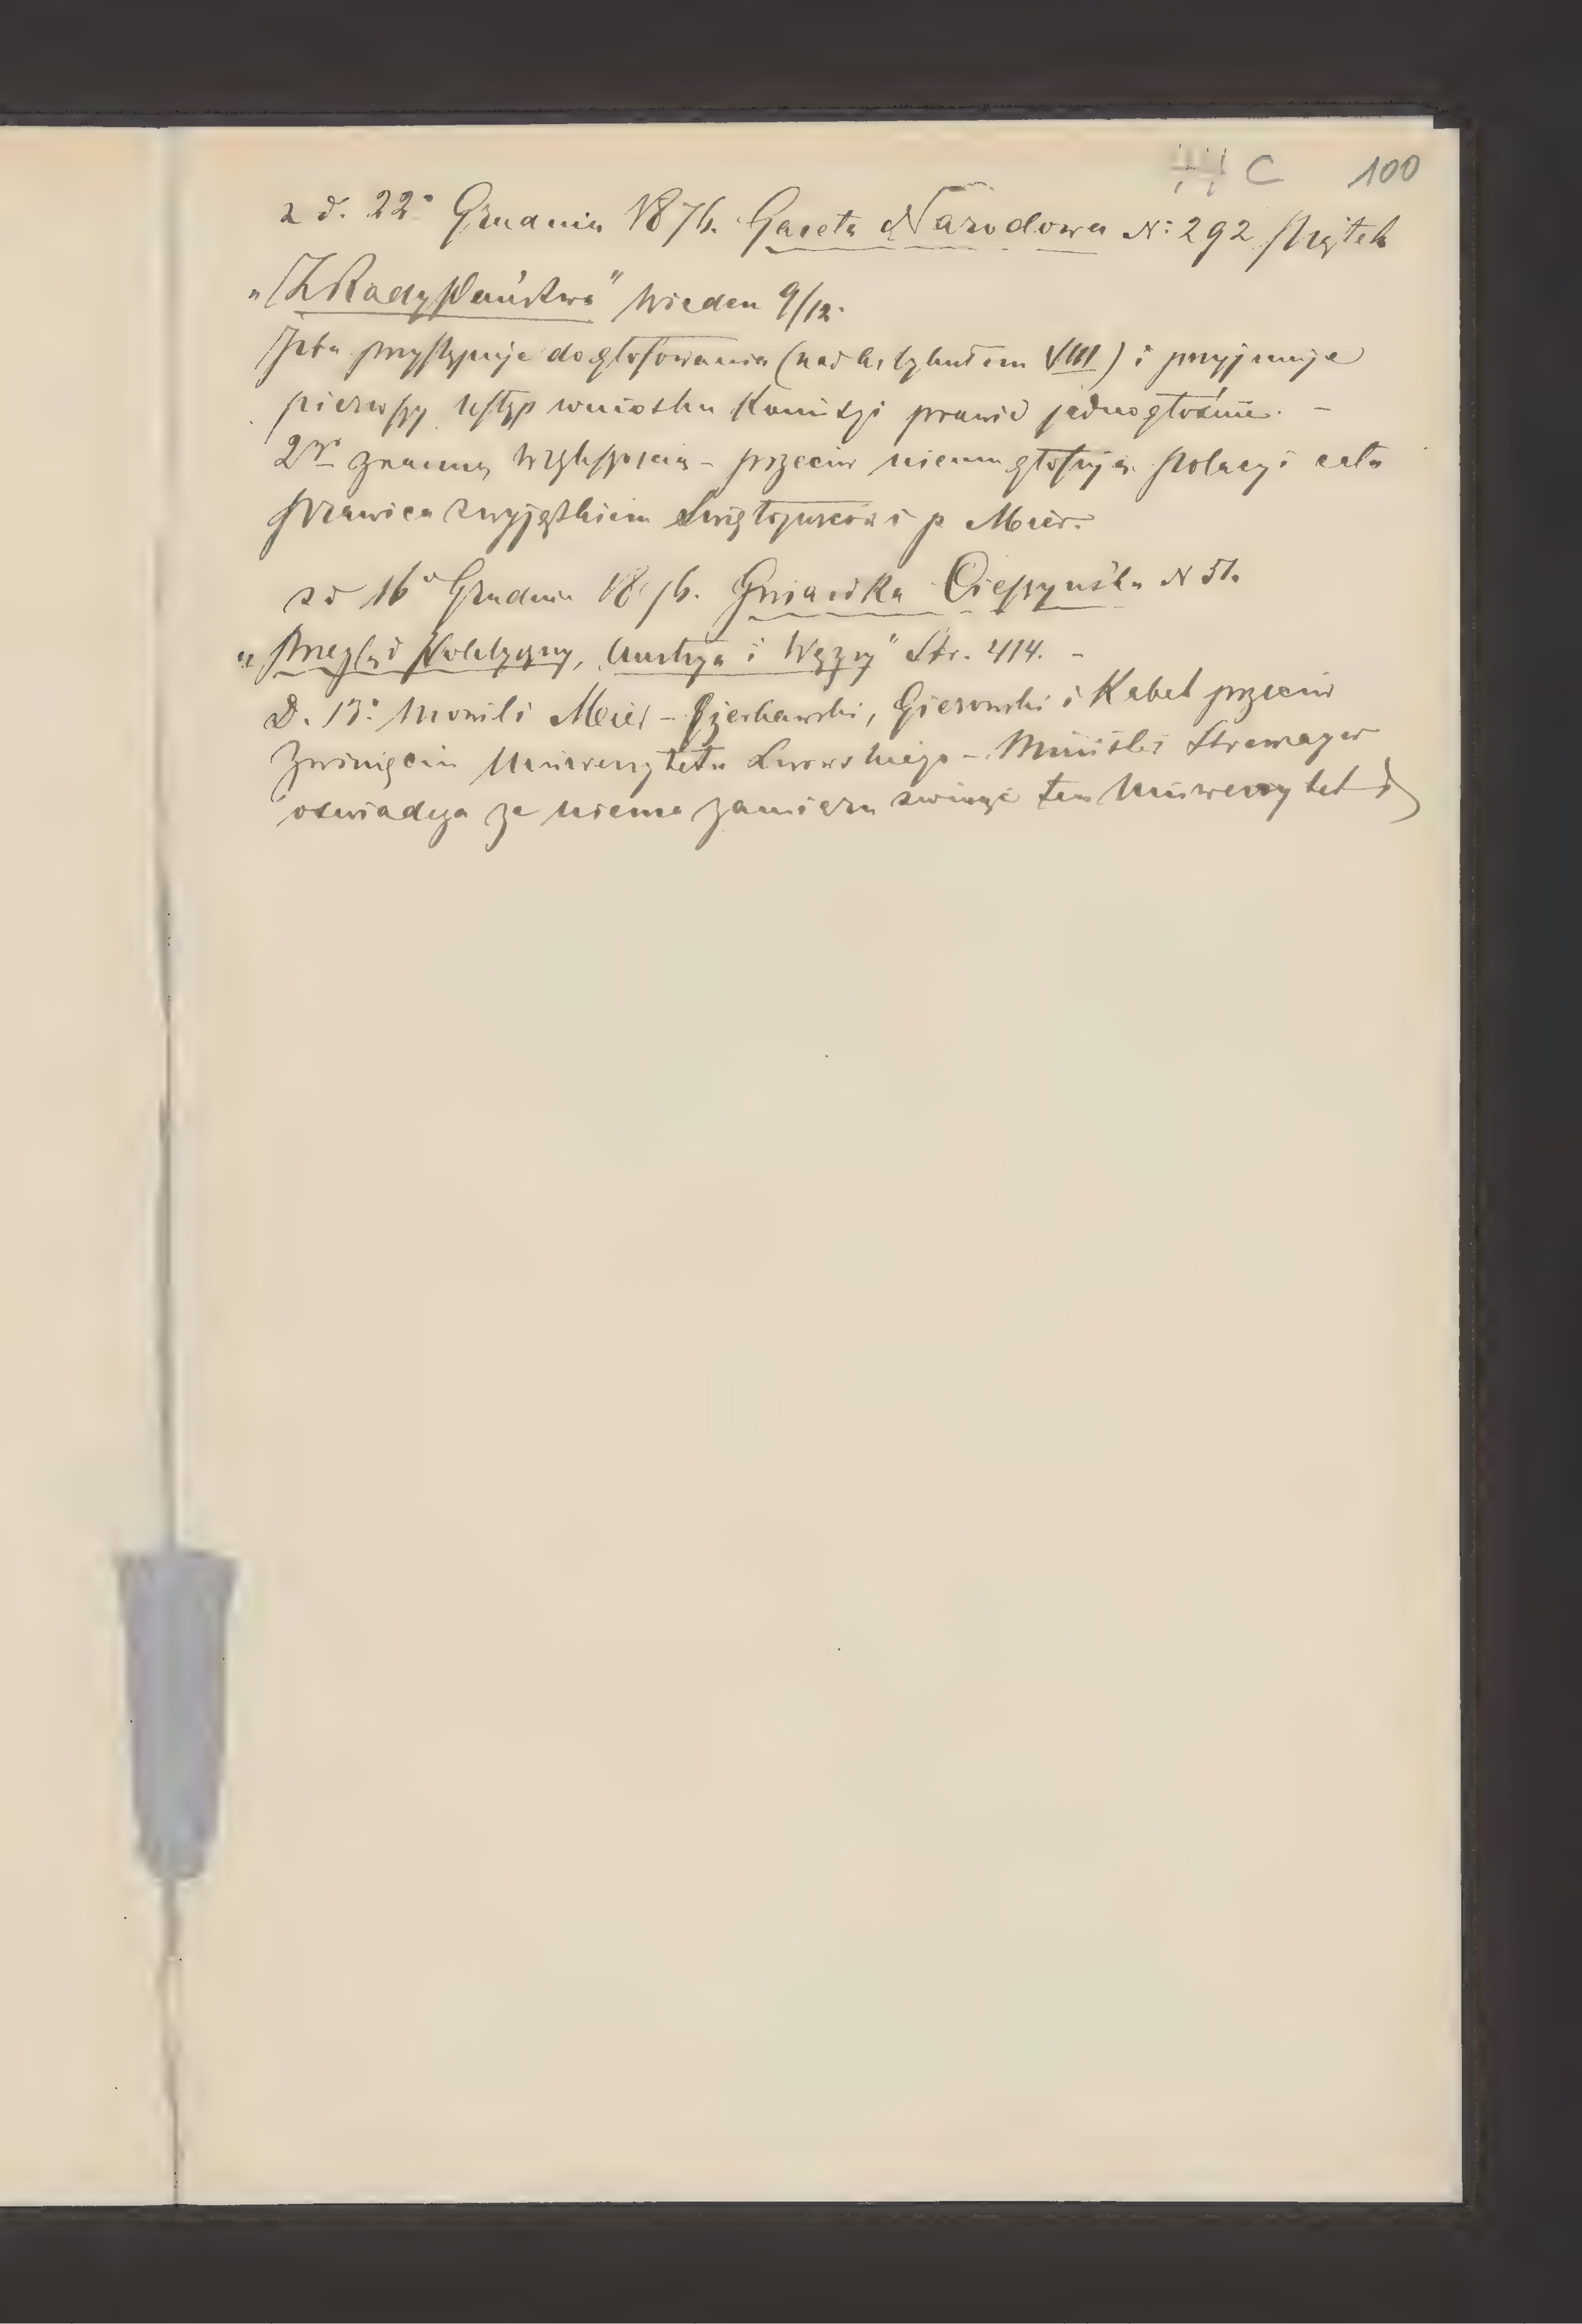 C 100
z d. 22° Grudnia 1876. Gazeta Narodowa N: 292 Piątek
„Z Rady Państwa" Wieden 9/12.
Izba przystępuje do głosowania (nad Artykułem VIII) i przyjmuje
pierwszy ustęp wniosku Komisyi prawie jednogłośnie. –
2gi znaczną większością – przeciw niemu głosują Polacy i cała
prawica z wyjątkiem p Meier.
z d 16° Grudnia 1876. Gwiazdka Cieszyńska N 51.
„Przegląd Polityczny, Austrya i Węgry" Str. 414. –
D. 13° mowili Meier – Czerkawski, Gierowski i Kabat przeciw
zwinięciu Uniwersytetu Lwowskiego – Minister Stremayer
oświadcza ze niema zamiaru zwinąć ten Uniwersytet